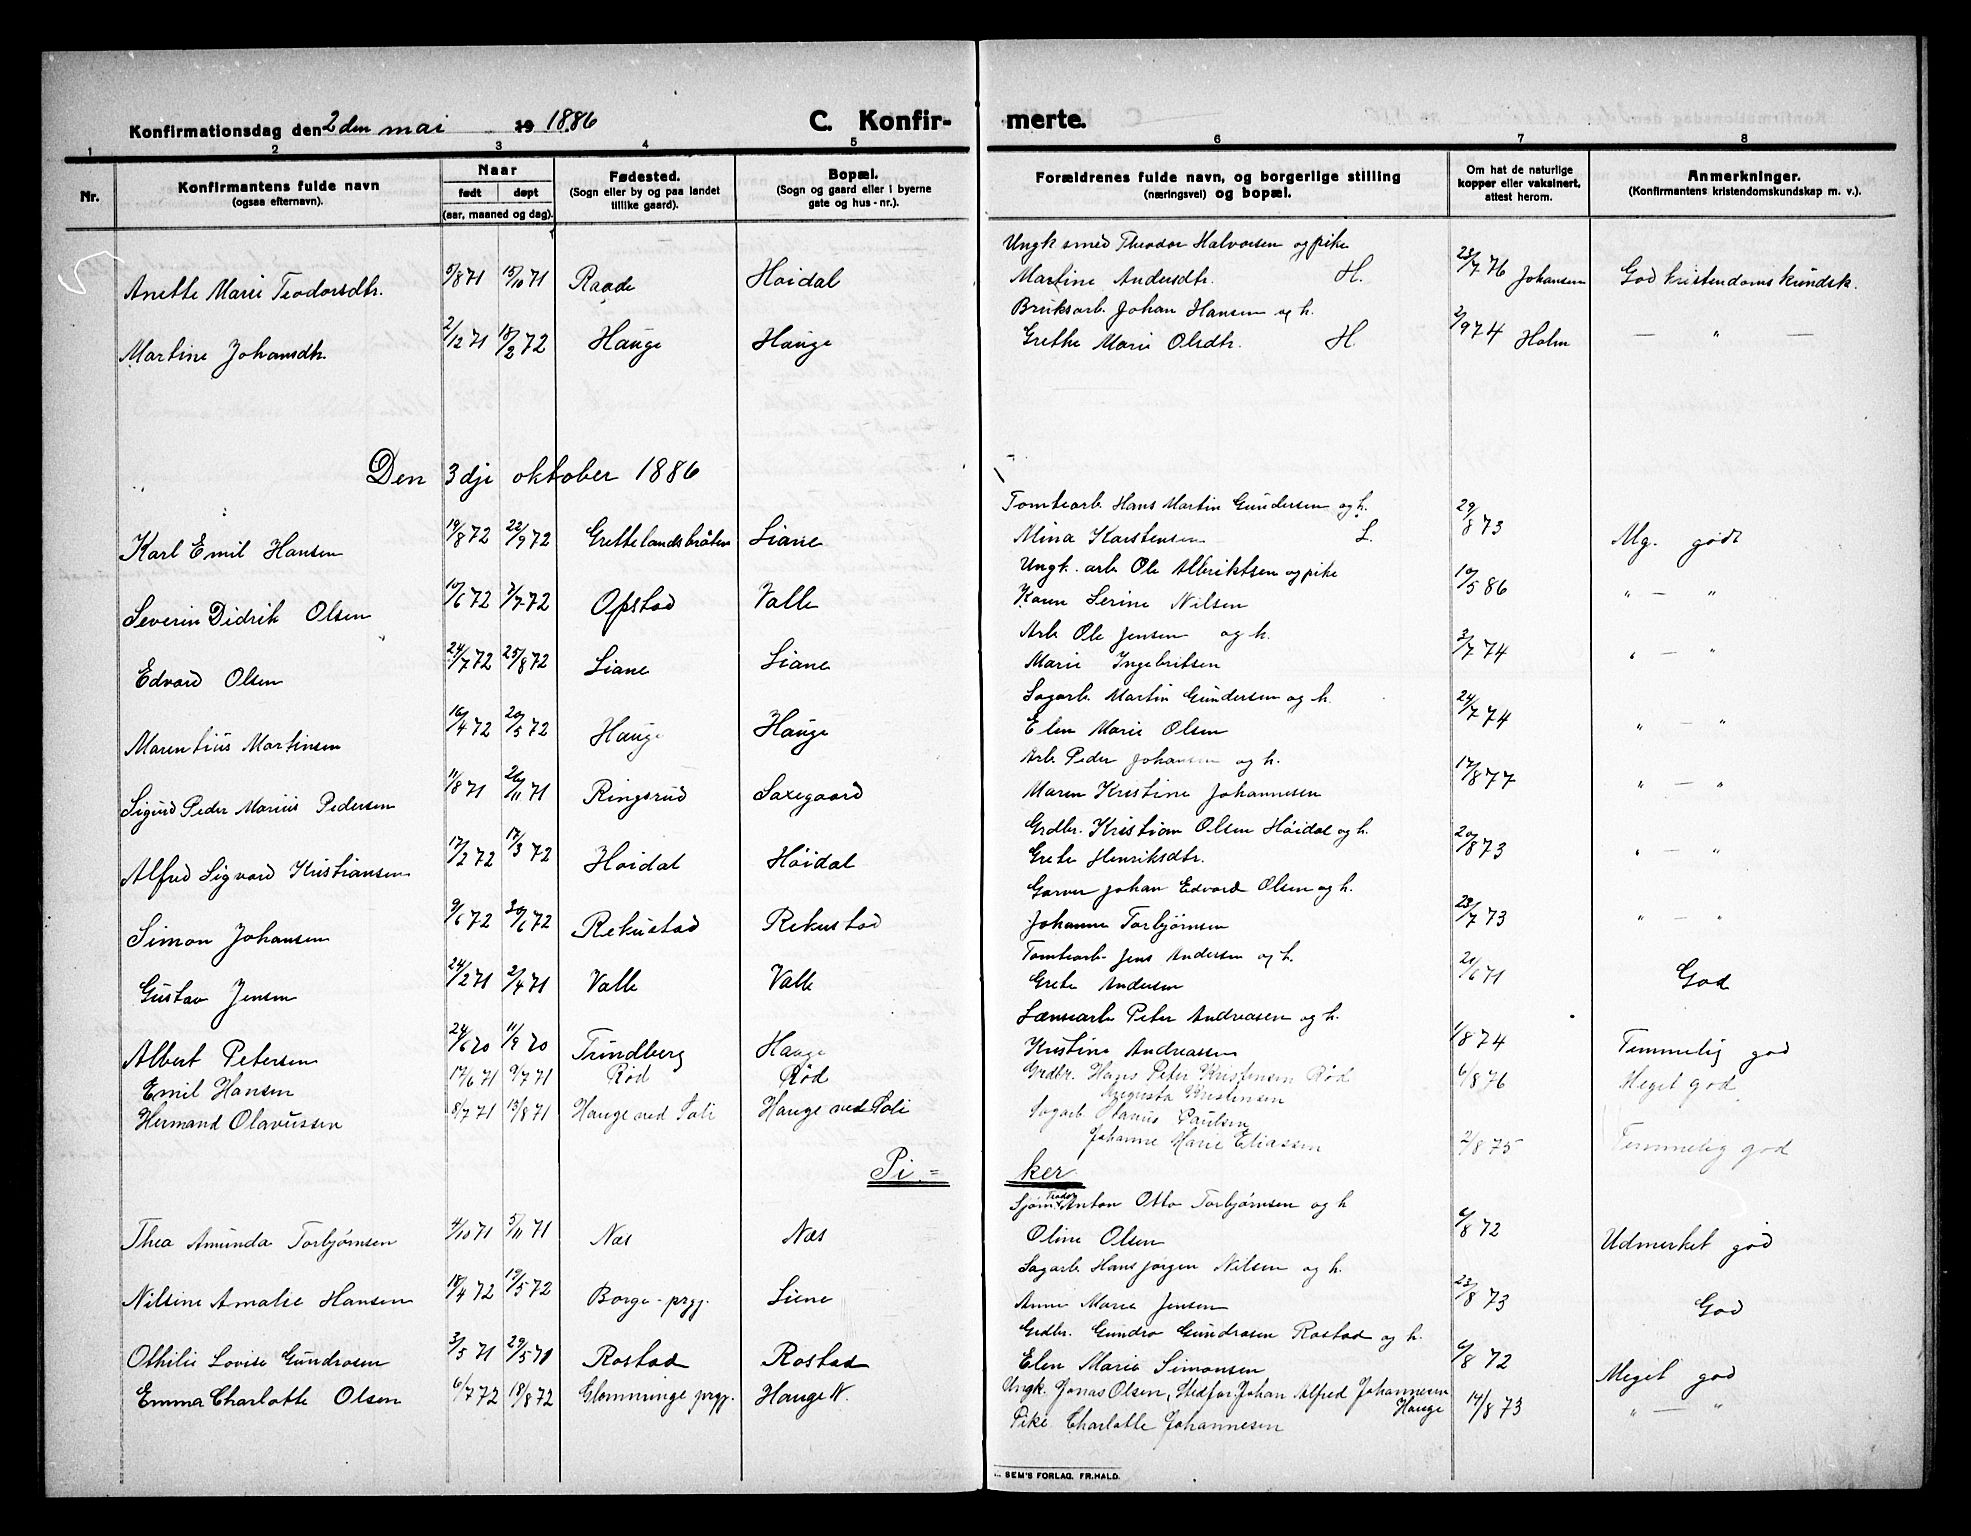 Konfirmationsdag den 2den mai 19 1886 C. Konfir- merte.
1 2 3 4 5 6 7 8
Nr. Konfirmantens fulde navn (ogsaa efternavn). Naar født døpt (aar, maaned og dag). Fødested. (Sogn eller by og paa landet tillike gaard). Bopæl. (Sogn og gaard eller i byerne gate og hus-nr.). Forældrenes fulde navn, og borgerlige stilling (næringsvei) og bopæl. Om hat de naturlige kopper eller vaksinert, attest herom. Anmerkninger. (Konfirmantens kristendomskundskap m. v.).
Ungk smed Theodor Halvorsen og pike
Anette Marie Teodorsdtr. 5/8 71 15/10 71 Raade Høidal Martine Andersdtr. H. 23/7 76 Johansen God kristendomskundsk.
Bruksarb. Johan Hansen og h.
Martine Johansdtr. 2/12 71 18/2 72 Hauge Hauge Grethe Marie Olsdtr. H. 2/9 74 Holm — " —
Den 3dje oktober 1886
Tomtearb. Hans Martin Gundersen og h.
Karl Emil Hansen 19/8 72 22/9 72 Grettelandsbråten Liane Mina Karstensen L. 29/8 73 Mg. godt
Ungk. arb. Ole Albriktsen og pike
Severin Didrik Olsen 10/6 72 7/7 72 Opstad Valle Karen Serine Nilsen 10/5 86 " — "
Arb. Ole Jensen og h.
Edvard Olsen 24/7 72 25/8 72 Liane Liane Marie Ingebritsen 3/7 74 " — "
Sagarb. Martin Gundersen og h.
Marentius Martinsen 16/4 72 20/5 72 Hauge Hauge Elen Marie Olsen 24/7 74 " — "
Arb. Peder Johansen og h.
Sigurd Peder Marius Pedersen 11/8 71 26/11 71 Ringsrud Saxegaard Maren Kristine Johannesen 17/8 77 " — "
Grdbr. Kristian Olsen Høidal og h.
Alfred Sigvard Kristiansen 17/2 72 17/3 72 Høidal Høidal Grete Henriksdtr. 20/8 73 " — "
Garver Johan Edvard Olsen og h.
Simon Johansen 9/6 72 30/6 72 Rekustad Rekustad Johanne Torbjørnsen 23/7 73 " — "
Tomtearb. Jens Andersen og h.
Gustav Jensen 24/2 71 2/4 71 Valle Valle Grete Andersen 21/6 71 God
Lænsearb Peter Andreasen og h.
Albert Petersen 24/6 70 11/9 70 Trindberg Hauge Kristine Andreassen 1/8 74 Temmelig god
Emil Hansen 17/6 71 9/7 71 Rød Rød Grdbr. Hans Peter Kristensen Rød 6/8 76 Meget god
Augusta Kristensen
Hermand Olavussen 8/7 71 13/8 71 Hauge ved Soli Hauge ved Soli Sagarb Olavus Paulsen
Johanne Marie Eliassen 2/8 75 Temmelig god
Pi = ker
Sjøm. Teodor Anton Otto Torbjørnsen og h
Thea Amunda Torbjørnsen 4/10 71 5/11 71 Næs Næs Oline Olsen 6/8 72 Udmerket god
Sagarb. Hans Jørgen Nilsen og h.
Nilsine Amalie Hansen 18/4 72 19/5 72 Borge-prgj. Liene Anne Marie Jensen 23/8 73 God
Grdbr. Gundro Gundrosen Rostad og h.
Othilie Lovise Gundrosen 3/5 71 29/5 71 Rostad Rostad Elen Marie Simonsen 6/8 72 Meget god
Emma Charlotte Olsen 6/7 72 18/8 72 Glemminge prgj. Hauge N. Ungk. Jonas Olsen, Stedfor. Johan Alfred Johannesen Hauge 14/8 73 " — "
Pike Charlotte Johannesen
SEM'S FORLAG. FR.HALD.